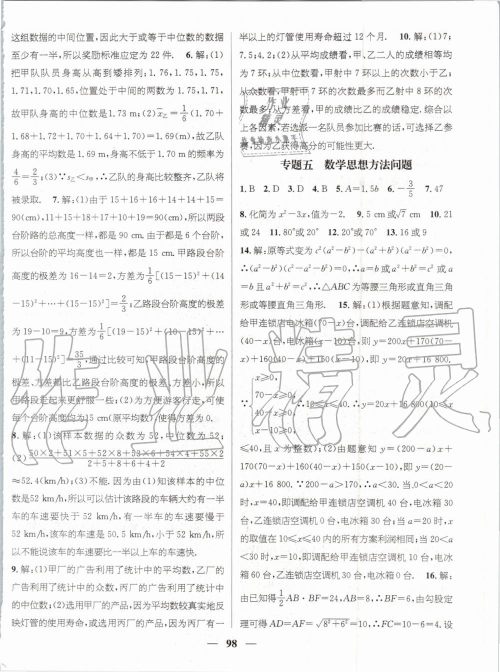 这组数据的中间位置，因此大于或等于中位数的数据
至少有一半，所以奖励标准应定为 22 件. 6. 解：(1)
把甲队队员身高从高到矮排列：1.76，1.75，1.75，
1.71，1.70，1.65，位置处于中间的两数为 1.75，1.71，
故甲队身高的中位数是 1.73 m；(2) x̄乙 = 1/6 (1.70+
1.68+1.72+1.70+1.64+1.70)=1.69(m)，故乙
队身高的平均数是 1.69 m，身高不低于 1.70 m 的频率为
4/6=2/3；(3)∵s乙<s甲，∴乙队的身高比较整齐，乙队将
被录取. 7. 解：(1)∵15+16+16+14+14+15=90
(cm)，11+15+18+17+10+19=90(cm)，∴甲、乙两段
台阶路的总高度一样，都是 90 cm. 由于都是 6 个台阶，
所以台阶的平均高度也一样，都是 15 cm. 甲路段台阶
高度的极差为 16-14=2，方差为 1/6[(15-15)²+(14
-15)²+…+(15-15)²]=2/3；乙路段台阶高度的极差
为 19-10=9，方差为 1/6[(19-15)²+(15-15)²+…
+(11-15)²]=35/3，通过比较可知，甲路段台阶高度的
极差、方差都比乙路段台阶高度的极差、方差小，所以走
甲路段的台阶会更舒服一些；(2)为方便游客行走，可使
每个台阶高度均为 15 cm(原平均数)，使得方差为 0.
8. 解：(1)该样本数据的众数为 52，中位数为 52；(2)
∵(50×2+51×5+52×8+53×6+54×4+55×2)/(2+5+8+6+4+2)
≈52.4(km/h)；(3)不能，因为由(1)知该样本的中位
数是 52 km/h，所以可以估计该路段的车辆大约有一半
的车速要快于 52 km/h，有一半车的车速要慢于
52 km/h，该车的车速是 50.5 km/h，小于 52 km/h，所
以不能说该车的车速比一半以上车的车速快.
9. 解：(1)甲厂的广告利用了统计中的平均数，乙厂的
广告利用了统计中的众数，丙厂的广告利用了统计中
的中位数；(2)选用甲厂的产品，因为平均数较真实地反
映灯管的使用寿命，或选用丙厂的产品，因为丙厂有一
半以上的灯管使用寿命超过 12 个月. 10. 解：(1)7；
7.5；4.2；(2)从平均成绩看，甲、乙二人的成绩相等均
为 7 环；从中位数看，甲射中 7 环以上的次数小于乙；
从众数看，甲射中 7 环的次数最多而乙射中 8 环的次
数最多；从方差看，甲的成绩比乙的成绩稳定. 综合以
上各因素，若选派一名队员参加比赛的话，可选择乙参
赛，因为乙获得高分的可能更大.
专题五 数学思想方法问题
1. B 2. D 3. B 4. D 5. A=1.5b 6. -3/5 7. 47
8. 化简为 x²-3x，值为-2. 9. 5 cm或√7 cm 10. 21
或 24 11. 80°或 50° 12. 7 13. 16或 9
14. 解：原等式变为 c²(a²-b²)-(a²+b²)(a²-b²)=0，
∴(a²-b²)(c²-a²-b²)=0，∴a=b或a²+b²=c²或a
=b且a²+b²=c²，∴△ABC 为等腰三角形或直角三角
形或等腰直角三角形. 15. 解：(1)根据题意知，调配
给甲连锁店电冰箱(70-x)台，调配给乙连锁店空调机
(40-x)台，电冰箱(x-10)台，则 y=200x+170(70-
x)+160(40-x)+150(x-10)，即 y=20x+16 800，
∵x≥0， 70-x≥0， 40-x≥0， x-10≥0，
∴10≤x≤40，∴y=20x+16 800(10≤x
≤40，且 x 为整数)；(2)由题意知 y=(200-a)x+
170(70-x)+160(40-x)+150(x-10)，即 y=(20-
a)x+16 800. ∵200-a>170，∴a<30. 当 0<a<20
时，x=40，即调配给甲连锁店空调机 40 台，电冰箱 30
台，乙连锁店空调机 0 台，电冰箱 30 台；当 a=20 时，x
的取值在 10≤x≤40 内的所有方案利润相同；当 20<
a<30 时，x=10，即调配给甲连锁店空调机 10 台，电
冰箱 60 台，乙连锁店空调机 30 台，电冰箱 0 台. 16. 解：
由已知得 1/2 AB·BF=24，AB=8，∴BF=6，由勾股定
理可得 AD=AF=√(8²+6²)=10，∴FC=10-6=4. 设
98